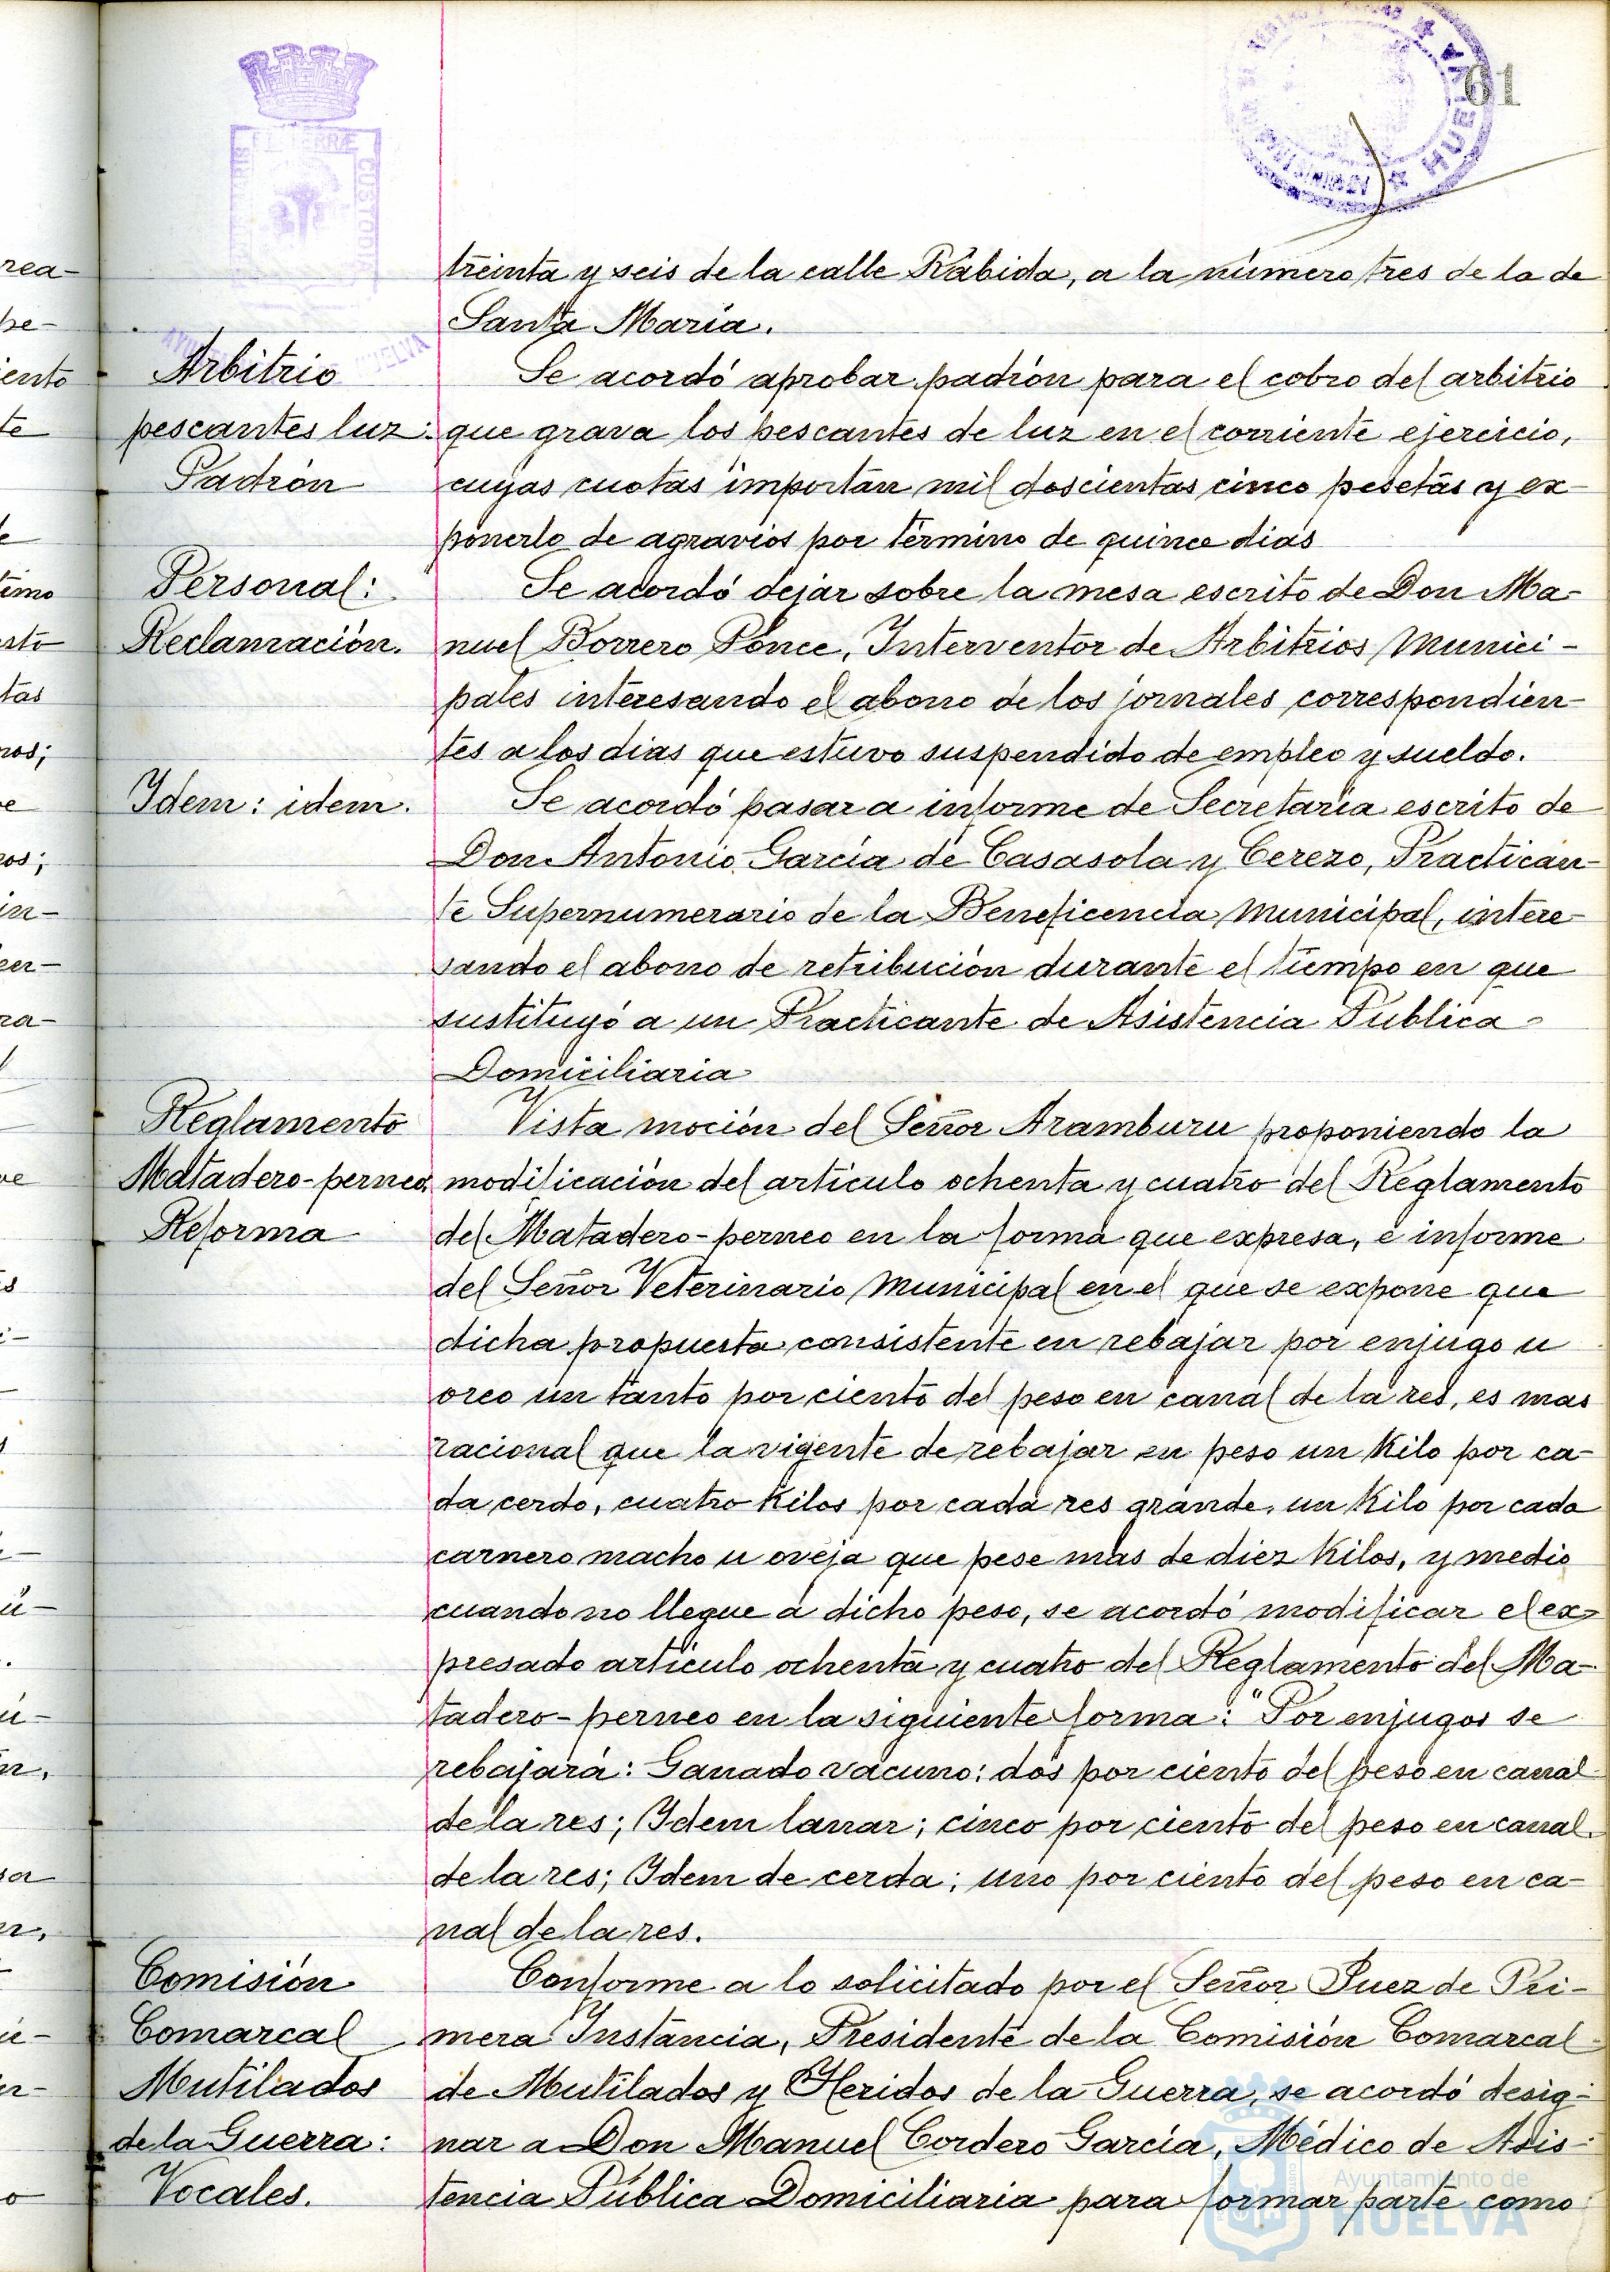 61
treinta y seis de la calle Rábida, a la número tres de la de
Santa María.
Arbitrio
pescantes luz:
Padrón
Se acordó aprobar padrón para el cobro del arbitrio
que grava los pescantes de luz en el corriente ejercicio,
cuyas cuotas importan mil doscientas cinco pesetas y ex-
ponerlo de agravios por término de quince dias
Personal:
Reclamación.
Se acordó dejar sobre la mesa escrito de Don Ma-
nuel Borrero Ponce, Interventor de Arbitrios Munici-
pales interesando el abono de los jornales correspondien-
tes a los dias que estuvo suspendido de empleo y sueldo.
Idem: idem.
Se acordó pasar a informe de Secretaría escrito de
Don Antonio García de Casasola y Cerezo, Practican-
te Supernumerario de la Beneficencia Municipal, intere-
sando el abono de retribución durante el tiempo en que
sustituyó a un Practicante de Asistencia Publica
Domiciliaria
Reglamento
Matadero-perneo
Reforma
Vista moción del Señor Aramburu proponiendo la
modificación del artículo ochenta y cuatro del Reglamento
del Matadero-perneo en la forma que expresa, e informe
del Señor Veterinario Municipal en el que se expone que
dicha propuesta consistente en rebajar por enjugo u
oreo un tanto por ciento del peso en canal de la res, es mas
racional que la vigente de rebajar en peso un Kilo por ca-
da cerdo, cuatro Kilos por cada res grande, un Kilo por cada
carnero macho u oveja que pese mas de diez Kilos, y medio
cuando no llegue a dicho peso, se acordó modificar el ex-
presado artículo ochenta y cuatro del Reglamento del Ma-
tadero-perneo en la siguiente forma: "Por enjugos se
rebajará: Ganado vacuno: dos por ciento del peso en canal
de la res; Idem lanar; cinco por ciento del peso en canal
de la res; Idem de cerda; uno por ciento del peso en ca-
nal de la res.
Comisión
Comarcal
Mutilados
de la Guerra:
Vocales.
Conforme a lo solicitado por el Señor Juez de Pri-
mera Instancia, Presidente de la Comisión Comarcal
de Mutilados y Heridos de la Guerra, se acordó desig-
nar a Don Manuel Cordero García, Médico de Asis-
tencia Pública Domiciliaria para formar parte como
Ayuntamiento de
HUELVA